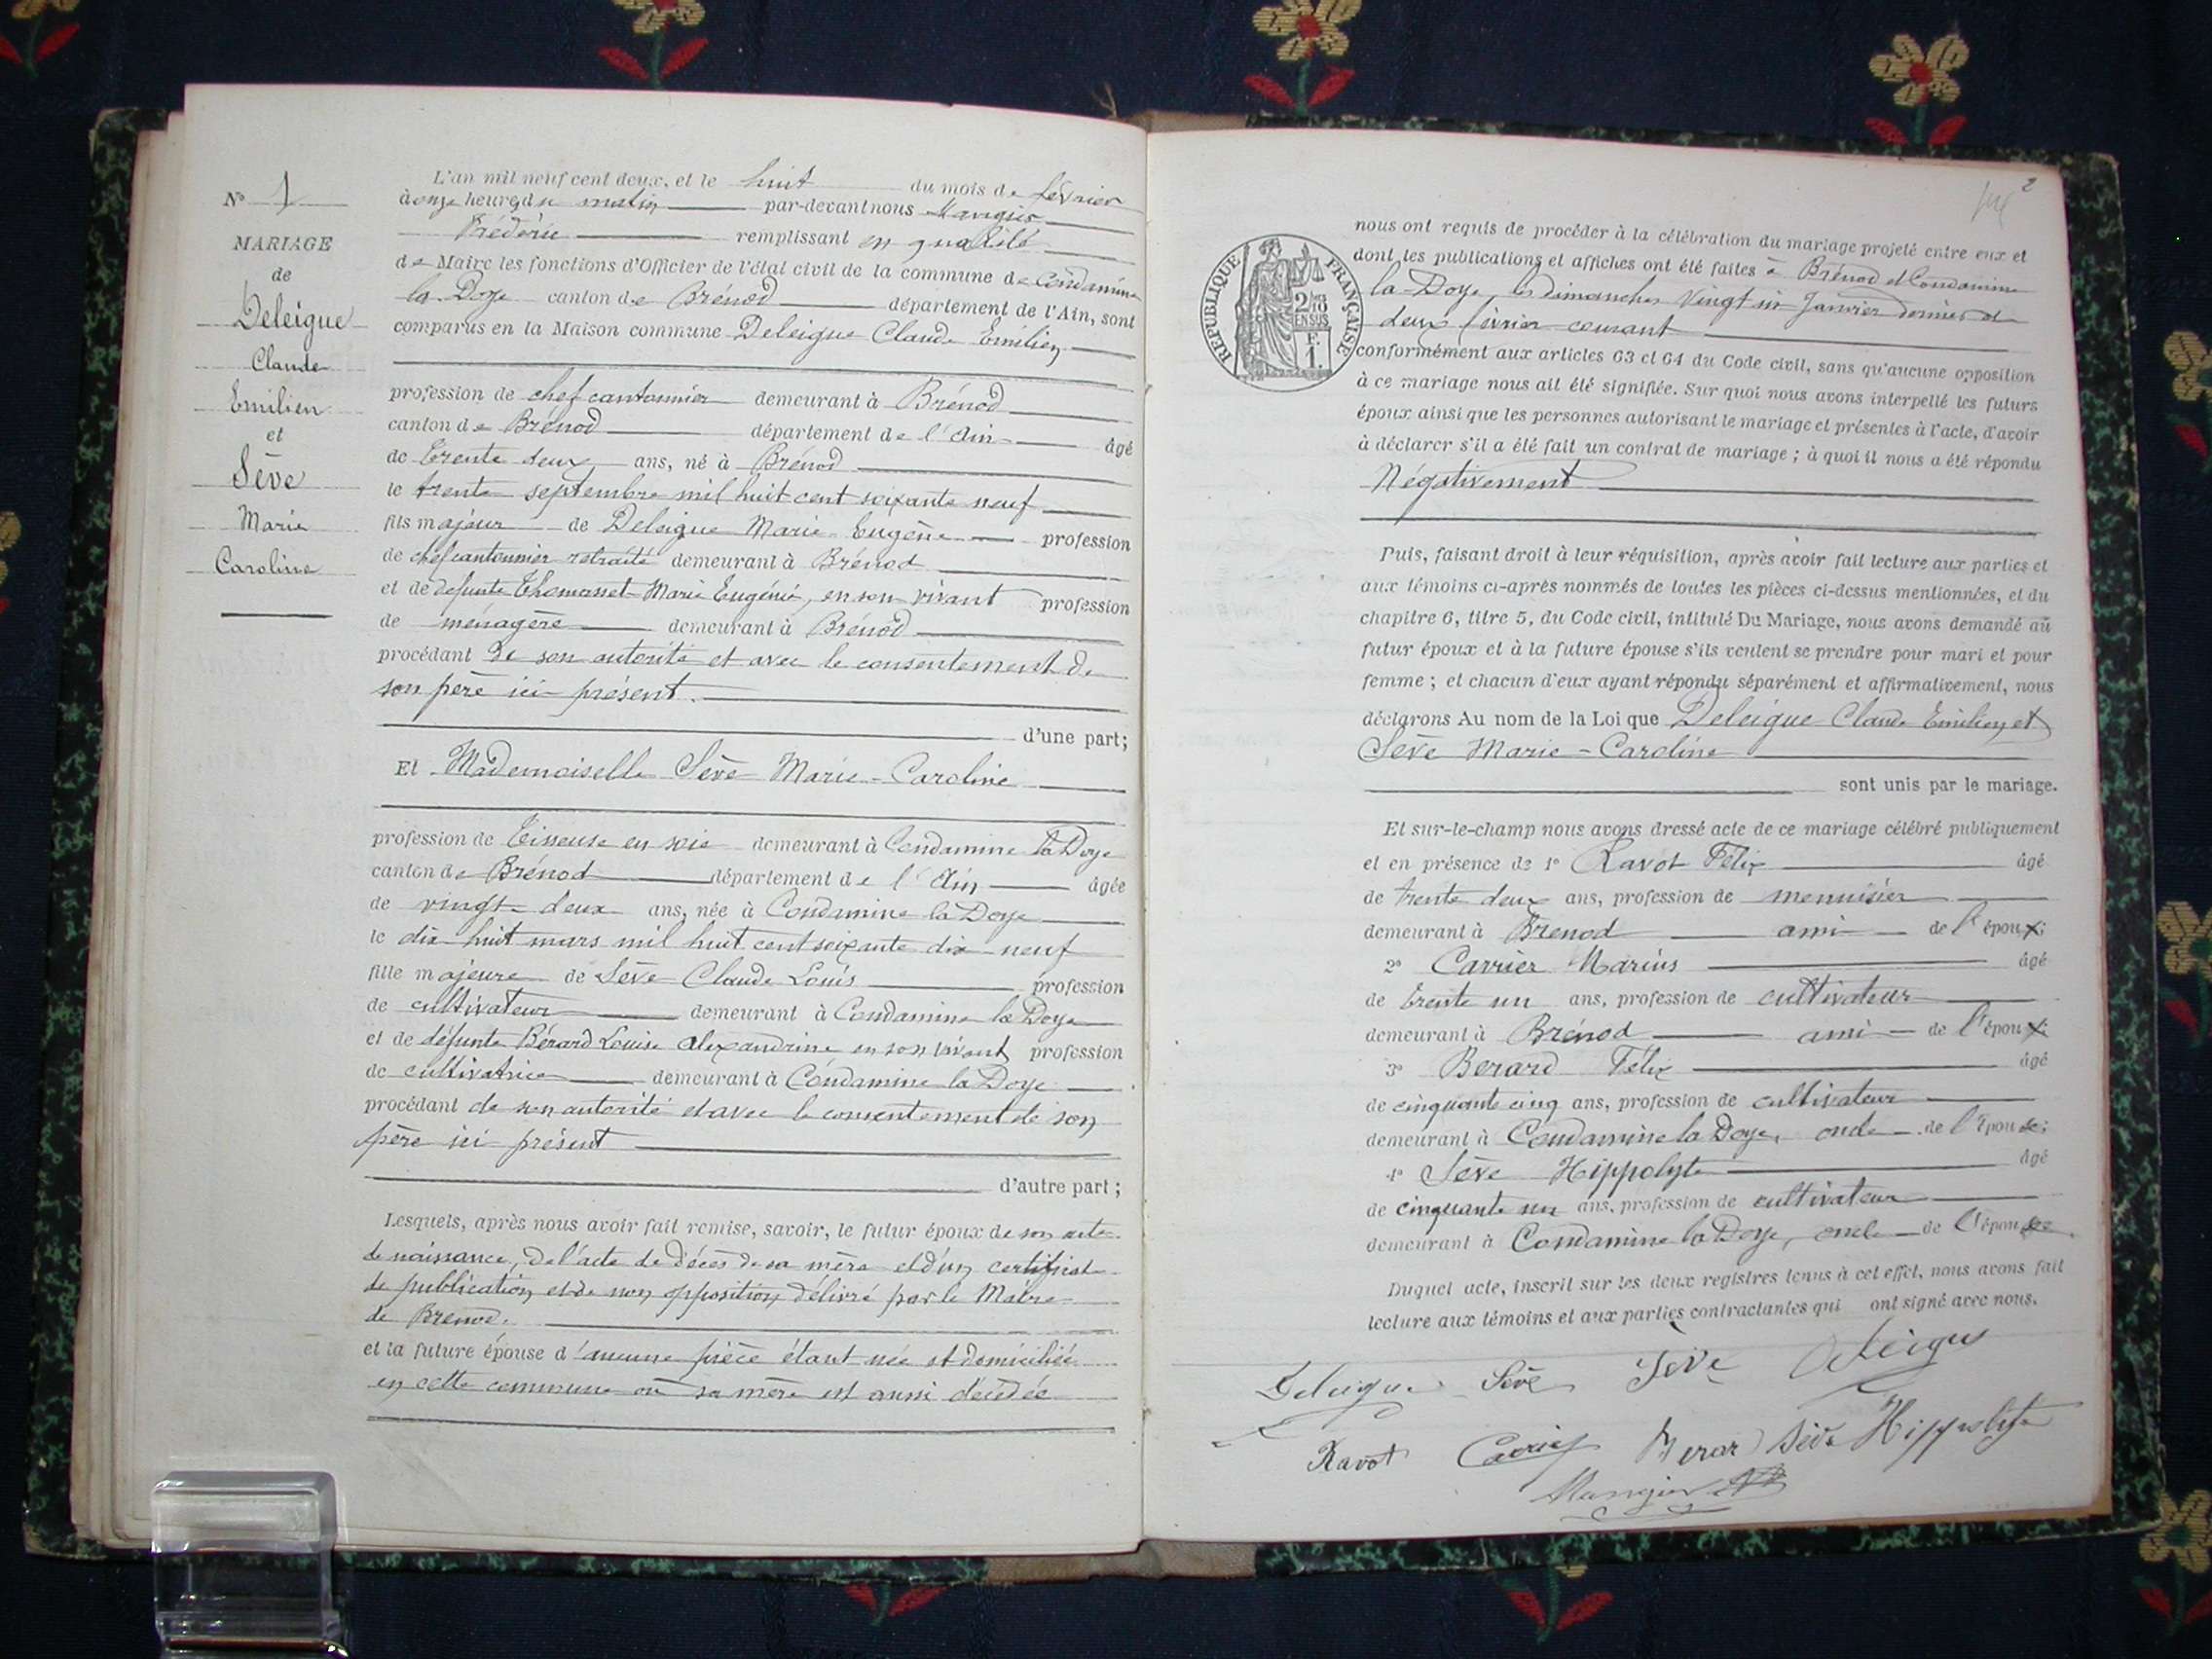 N° 1
MARIAGE
de
Deleigue
Claude
Emilien
et
Sève
Marie
Caroline
L'an mil neuf cent deux, et le huit du mois de février
à onze heures du matin par-devant nous Mangier
Frédéric remplissant en qualité
de Maire les fonctions d'Officier de l'état civil de la commune de Condamine
la Doye canton de Brénod département de l'Ain, sont
comparus en la Maison commune Deleigue Claude Emilien
profession de chef cantonnier demeurant à Brénod
canton de Brénod département de l'Ain âgé
de trente deux ans, né à Brénod
le trente septembre mil huit cent soixante neuf
fils majeur de Deleigue Marie Eugène profession
de chef cantonnier retraité demeurant à Brénod
et de défunte Thomasset Marie Eugénie, en son vivant profession
de ménagère demeurant à Brénod
procédant de son autorité et avec le consentement de
son père ici présent.
d'une part;
Et Mademoiselle Sève Marie-Caroline
profession de Tisseuse en soie demeurant à Condamine la Doye
canton de Brénod département de l'Ain âgée
de vingt-deux ans, née à Condamine la Doye
le dix huit mars mil huit cent soixante dix neuf
fille majeure de Sève Claude Louis profession
de cultivateur demeurant à Condamine la Doye
et de défunte Bérard Louise Alexandrine en son vivant profession
de cultivatrice demeurant à Condamine la Doye
procédant de son autorité et avec le consentement de son
père ici présent
d'autre part;
Lesquels, après nous avoir fait remise, savoir, le futur époux de son acte
de naissance, de l'acte de décès de sa mère et d'un certificat
de publication et de non opposition délivré par le Maire
de Brenod.
et la future épouse d'aucune pièce étant née et domiciliée
en cette commune où sa mère est aussi décédée
2
nous ont requis de procéder à la célébration du mariage projeté entre eux et
dont les publications et affiches ont été faites à Brénod et Condamine
la-Doye, les dimanches vingt six Janvier dernier et
deux février courant
RÉPUBLIQUE FRANÇAISE
2/10
EN SUS
F.
1.
conformément aux articles 63 et 64 du Code civil, sans qu'aucune opposition
à ce mariage nous ait été signifiée. Sur quoi nous avons interpellé les futurs
époux ainsi que les personnes autorisant le mariage et présentes à l'acte, d'avoir
à déclarer s'il a été fait un contrat de mariage; à quoi il nous a été répondu
Négativement
Puis, faisant droit à leur réquisition, après avoir fait lecture aux parties et
aux témoins ci-après nommés de toutes les pièces ci-dessus mentionnées, et du
chapitre 6, titre 5, du Code civil, intitulé Du Mariage, nous avons demandé au
futur époux et à la future épouse s'ils veulent se prendre pour mari et pour
femme; et chacun d'eux ayant répondu séparément et affirmativement, nous
déclarons Au nom de la Loi que Deleigue Claude Emilien et
Sève Marie-Caroline
sont unis par le mariage.
Et sur-le-champ nous avons dressé acte de ce mariage célébré publiquement
et en présence de 1° Ravot Félix âgé
de trente deux ans, profession de menuisier
demeurant à Brenod ami de l'époux;
2° Carrier Marius âgé
de trente un ans, profession de cultivateur
demeurant à Brénod ami de l'époux;
3° Berard Félix âgé
de cinquante cinq ans, profession de cultivateur
demeurant à Condamine la Doye, oncle de l'épouse;
4° Sève Hippolyte âgé
de cinquante un ans, profession de cultivateur
demeurant à Condamine la Doye, oncle de l'épouse
Duquel acte, inscrit sur les deux registres tenus à cet effet, nous avons fait
lecture aux témoins et aux parties contractantes qui ont signé avec nous.
Deleigue Sève Sève Deleigue
Ravot Carrier Berard Sève Hippolyte
Mangier